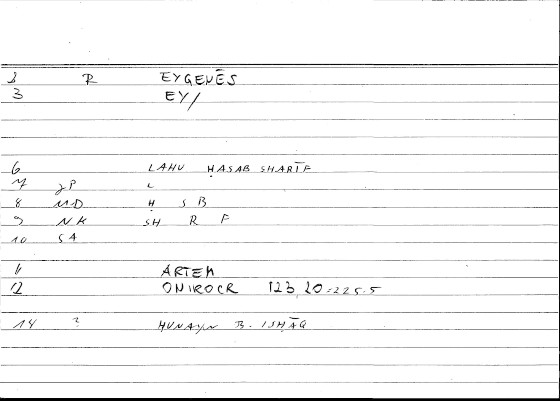 1 R EYGENĒS
3 EY/
6 LAHU ḤASAB SHARĪF
7 JP L
8 MD Ḥ S B
9 NK SH R F
10 SA
11 ARTEM
12 ONIROCR 123,20=225.5
14 ? ḤUNAYN B. ISḤĀQ